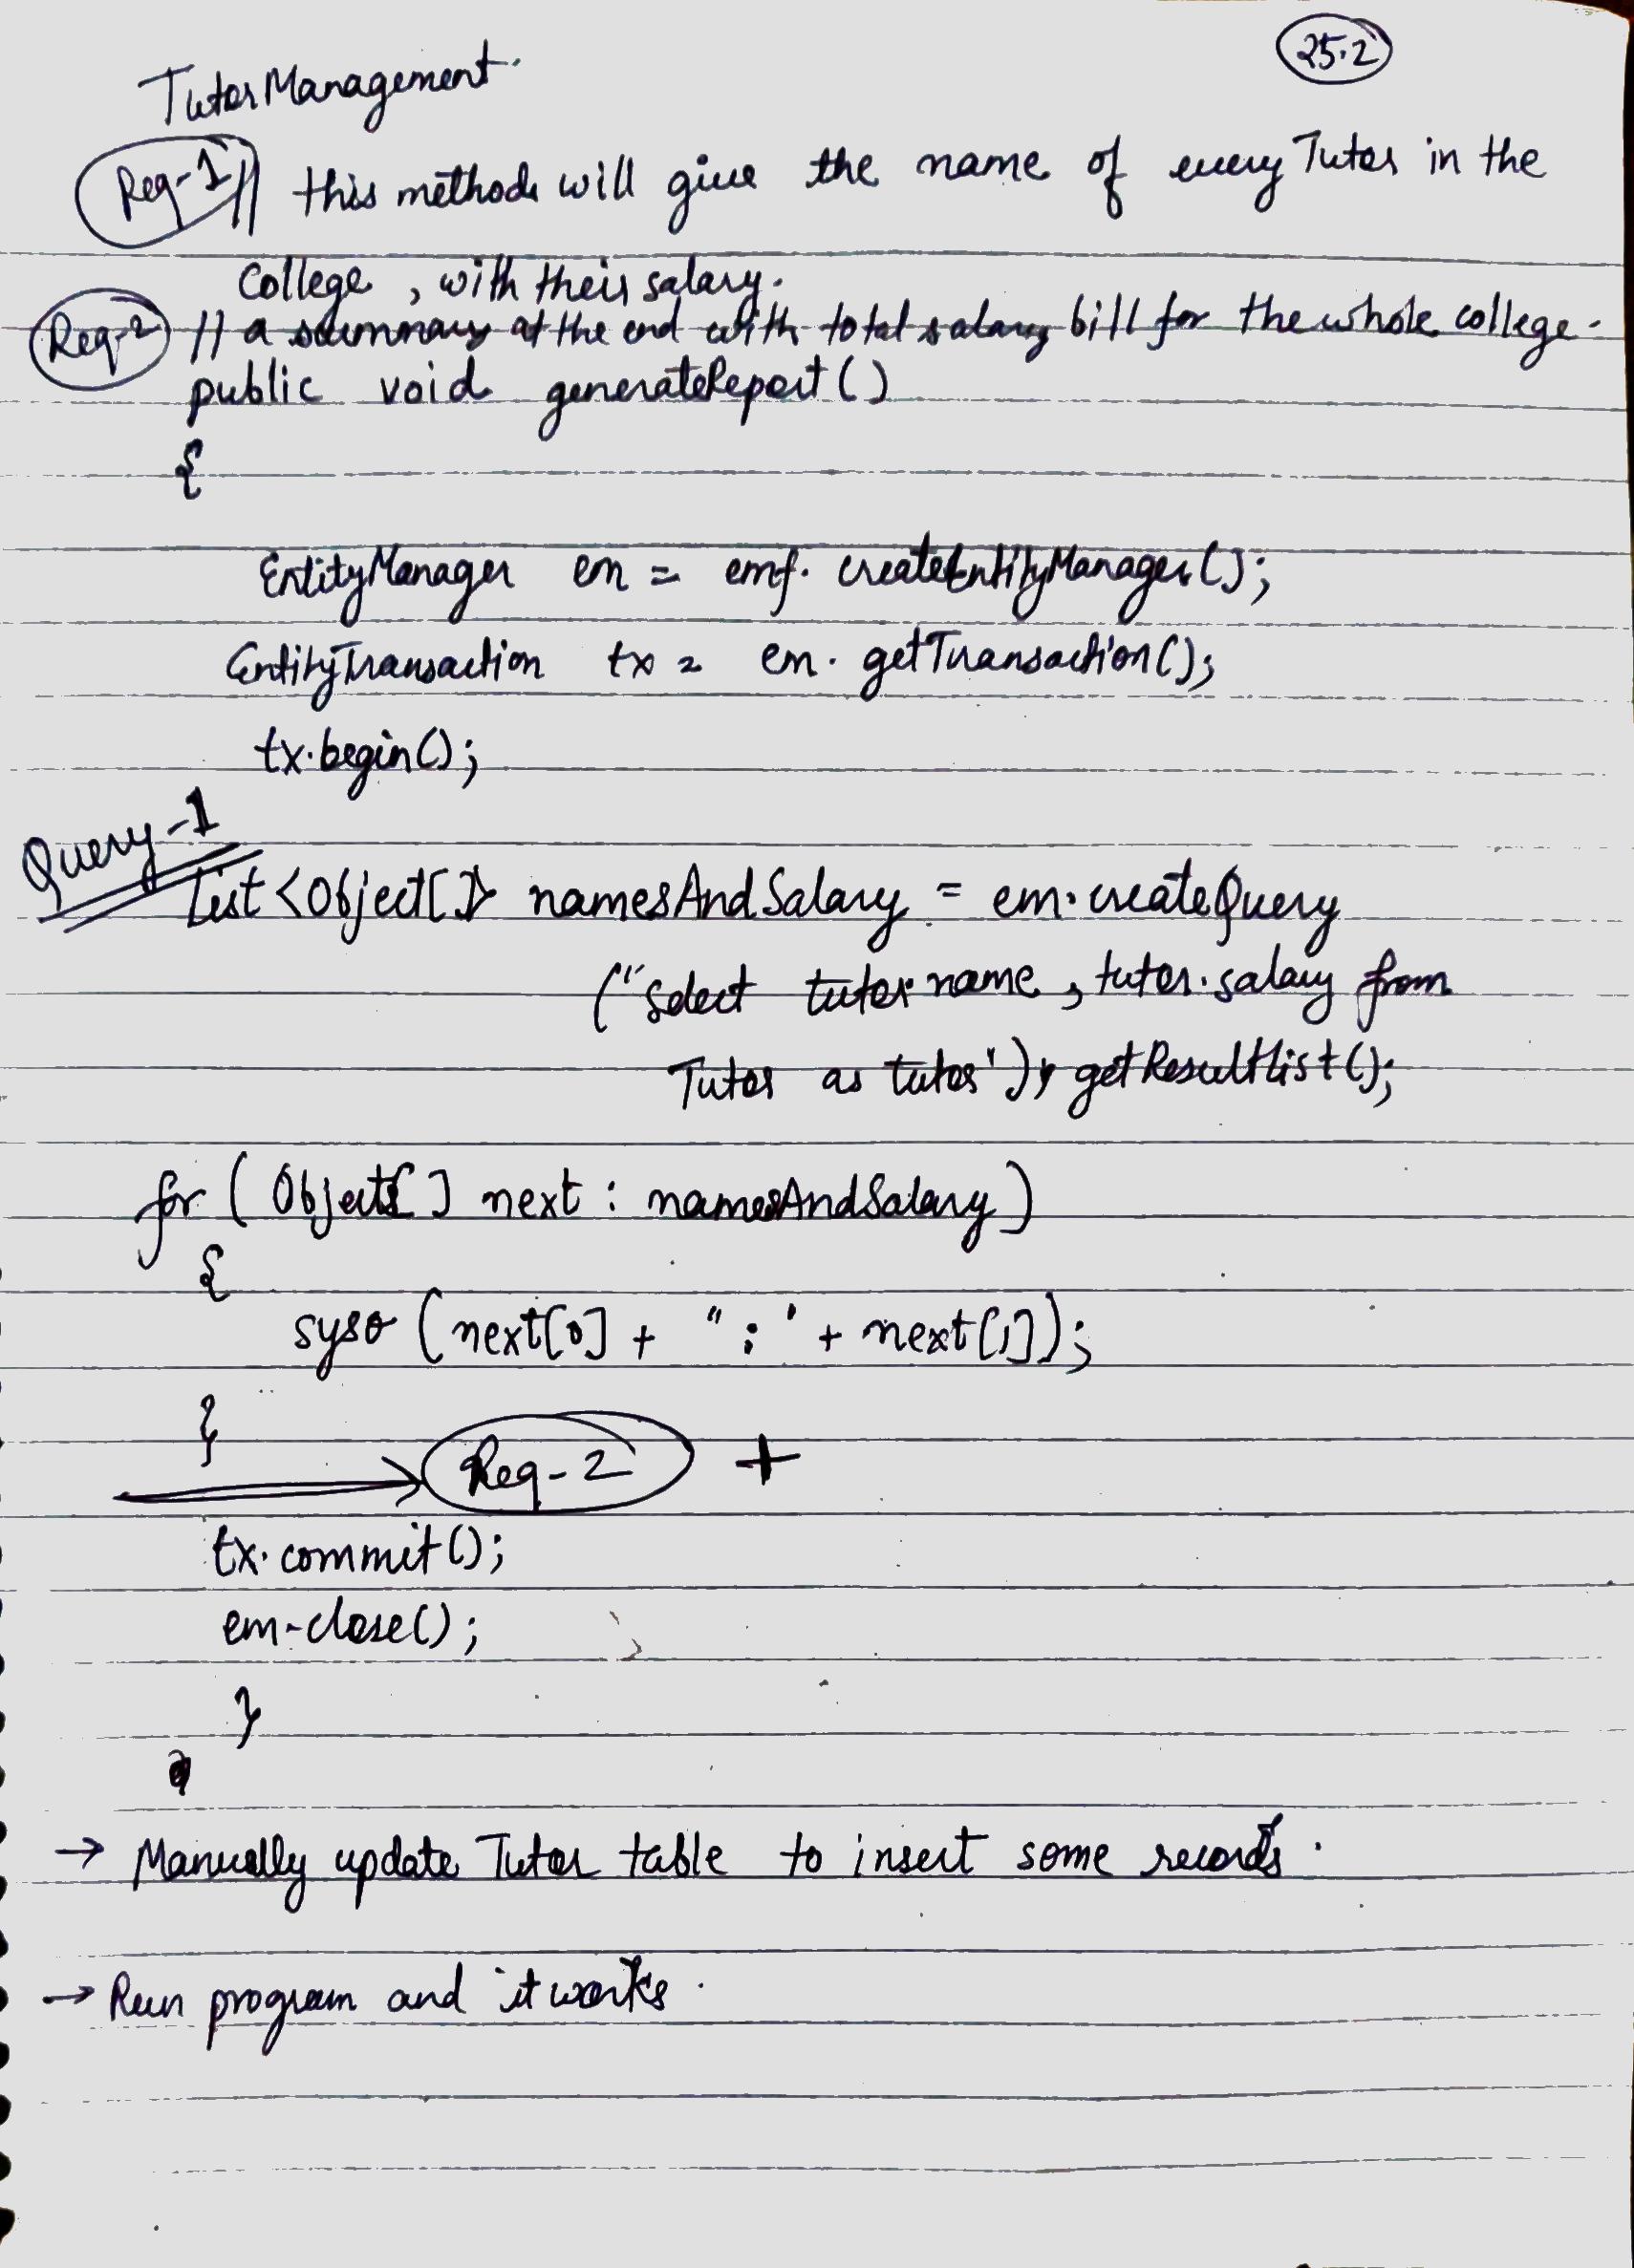 25.2
TutorManagement.
Req-1 // this method will give the name of every Tutor in the
College, with their salary.
Req-2 // a summary at the end with total salary bill for the whole college.
public void generateReport()
{
EntityManager em = emf. createEntityManager();
EntityTransaction tx = em. getTransaction();
tx.begin();
Query-1
List <Object[]> namesAndSalary = em.createQuery
("Select tutor.name, tutor.salary from
Tutor as tutor").getResultList();
for (Object[] next : namesAndSalary)
{
syso (next[0] + ";" + next[1]);
}
→ Req-2 +
tx.commit();
em.close();
}
→ Manually update Tutor table to insert some records.
→ Run program and it works.